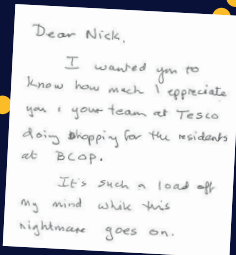 Dear Nick,
I wanted you to
know how much I appreciate
you & your team at Tesco
doing shopping for the residents
at BCOP.
It's such a load off
my mind while this
nightmare goes on.